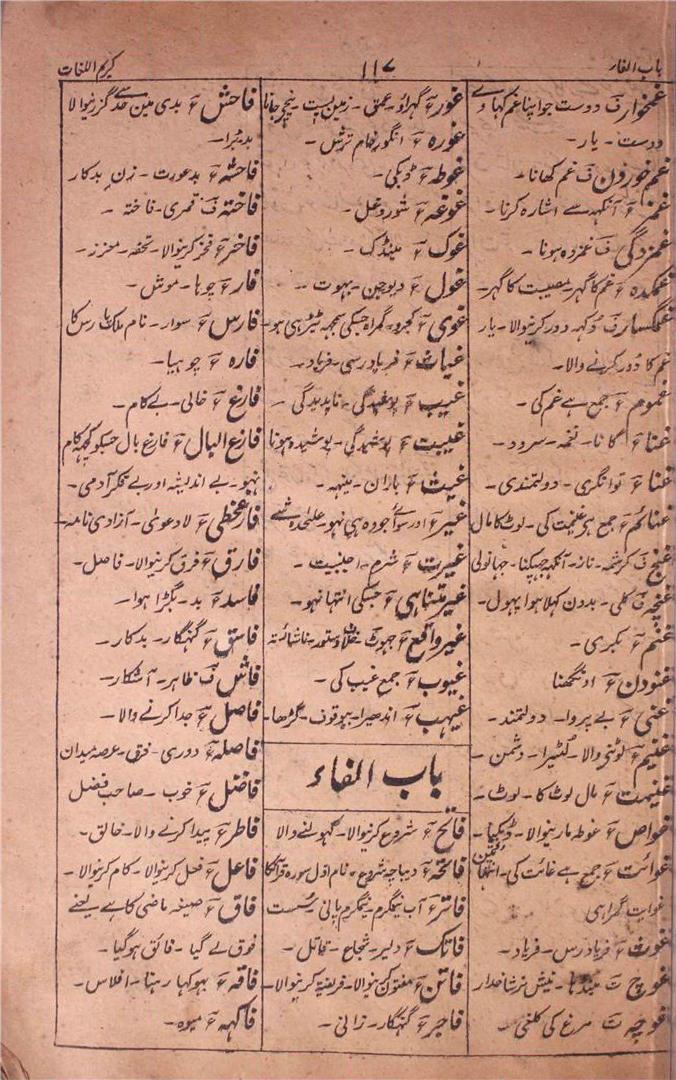 باب الفاء
۱۱۷
کریم اللغات
غمخوار ف دوست جو اپنا غم کہاوے
دوست - یار -
غم خوردن ف غم کھانا -
غمز ع آنکہہ سے اشارہ کرنا -
غمزدگی ف غمزدہ ہونا -
غمکدہ ع غم کا گہر - مصیبت کا گہر -
غمگسار ف دکہہ دور کرنیوالا - یار
غم کا دُور کرنے والا -
غموم ع جمع ہے غم کی -
غنا ع گانا - نغمہ - سرود -
غنا ع توانگری - دولتمندی -
غنائم ع جمع ہے غنیمت کی - لوٹ کا مال
غنج ف کرشمہ - ناز - آنکہہ جہپکنا -
غنچہ ف کلی - بدون کہلا ہوا پہول -
غنم ع بکری -
غنودن ع اونگھنا
غنی ع بے پروا - دولتمند -
غنیم ع لوٹنی والا - لٹیرا - دشمن -
غنیمت ع مال لوٹ کا - لوٹ -
غواص ع غوطہ مارنیوالا -
غوائت ع جمع ہے غائت کی -
غوایت گمراہی
غوث ع فریاد رس - فریاد -
غوچ ت مینڈہا -
غوچہ ت مرغ کی کلغی -
غور ع گہراؤ - عمق - زمین پست - نیچی جانا
غورہ ع انگور خام ترش -
غوطہ ع ڈبکی -
غوغہ ع شور و غل -
غوک ع مینڈک -
غول ع دیو جن - بہوت -
غوی ع کجرو - گمراہ جسکی سمجہہ ٹیڑہی ہو -
غیاث ع فریاد رسی - فریاد -
غیب ع پوشیدگی - ناپدیدگی -
غیبت ع پوشیدگی - پوشیدہ ہونا
غیث ع باران - مینہہ -
غیر ع اور سوائے جو وہ ہی نہو - علٰحدہ شے
غیرت ع شرم - اجنبیت -
غیر متناہی ع جسکی انتہا نہو -
غیر واقع ع جہوٹ - خلاف دستور - ناشائستہ
غیوب ع جمع غیب کی -
غیہب ع اندھیرا - بیوقوف - گڑھا -
باب الفاء
فاتح ع شروع کرنیوالا - کہولنے والا
فاتحہ ع دیباچہ - شروع - نام اول سورہ قرآنکا
فاتر ع آب نیمگرم - نیمگرم پانی - سُست
فاتک ع دلیر - شجاع - قاتل -
فاتن ع مفتون کرنیوالا - فریفتہ کرنیوالا -
فاجر ع گنہگار - زانی -
فاحش ع بدی مین حد سے گزرنیوالا
بد - بُرا -
فاحشہ ع بد عورت - زن بدکار
فاختہ ف قمری - فاختہ -
فاخر ع فخر کرنیوالا - تحفہ - معزز -
فار ع چوہا - موش -
فارس ع سوار - نام ملک پارس کا
فارہ ع چوہیا -
فارغ ع خالی - بے کام -
فارغ البال ع فارغ بال جسکو کچہہ کام
نہو - بے اندیشہ اور بے فکر آدمی -
فارغخطی ع لادعویٰ - آزادی نامہ -
فارق ع فرق کرنیوالا - فاصل -
فاسد ع بد - بگڑا ہوا -
فاسق ع گنہگار - بدکار -
فاش ف ظاہر - آشکار -
فاصل ع جدا کرنے والا -
فاصلہ ع دوری - فرق - عرصہ میدان
فاضل ع خوب - صاحب فضل
فاطر ع پیدا کرنے والا - خالق -
فاعل ع فعل کرنیوالا - کام کرنیوالا -
فاق ع صیغہ ماضی کا ہے یعنے
فوق لے گیا - فائق ہوگیا -
فاقہ ع بہوکہا رہنا - افلاس -
فاکہہ ع میوہ -